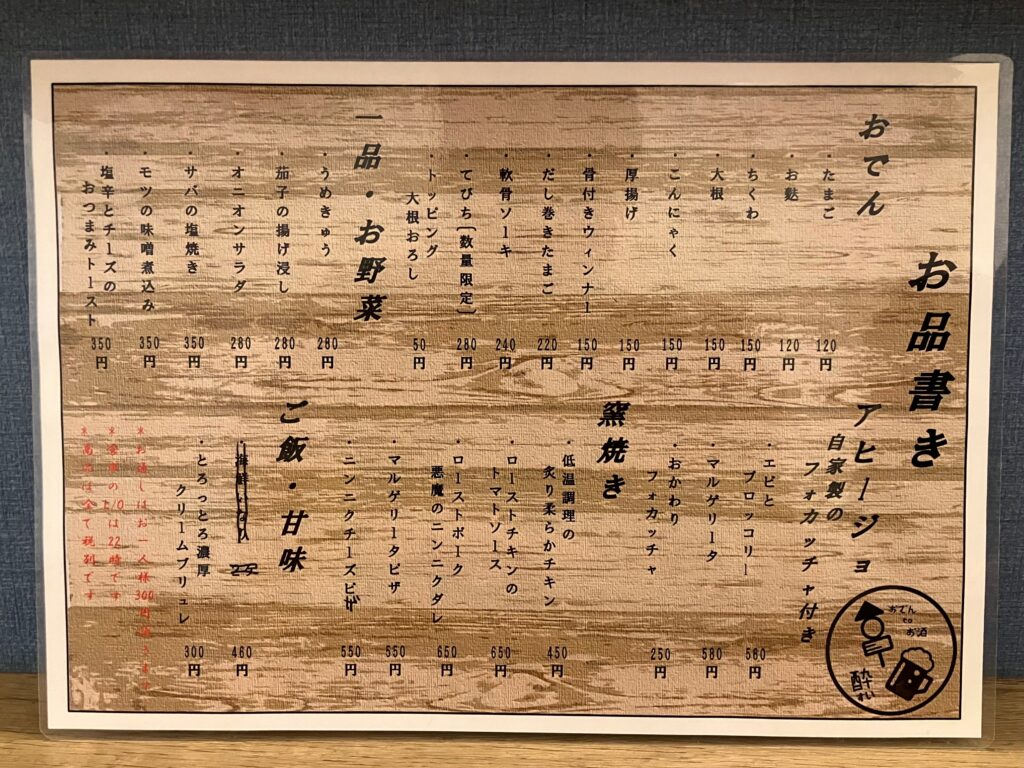 お品書き
おでん
・たまご 120円
・お麩 120円
・ちくわ 150円
・大根 150円
・こんにゃく 150円
・厚揚げ 150円
・骨付きウィンナー 150円
・だし巻きたまご 220円
・軟骨ソーキ 240円
・てびち〔数量限定〕 280円
・トッピング
大根おろし 50円
一品・お野菜
・うめきゅう 280円
・茄子の揚げ浸し 280円
・オニオンサラダ 280円
・サバの塩焼き 350円
・モツの味噌煮込み 350円
・塩辛とチーズの
おつまみトースト 350円
アヒージョ
自家製の
フォカッチャ付き
・エビと
ブロッコリー 580円
・マルゲリータ 580円
・おかわり
フォカッチャ 250円
窯焼き
・低温調理の
炙り柔らかチキン 450円
・ローストチキンの
トマトソース 650円
・ローストポーク
悪魔のニンニクダレ 650円
・マルゲリータピザ 550円
・ニンニクチーズピザ 550円
ご飯・甘味
460円
・とろっとろ濃厚
クリームブリュレ 300円
*お通しはお一人様300円
は22時です
*商品は全て税別です
おでん
to
お酒
酔